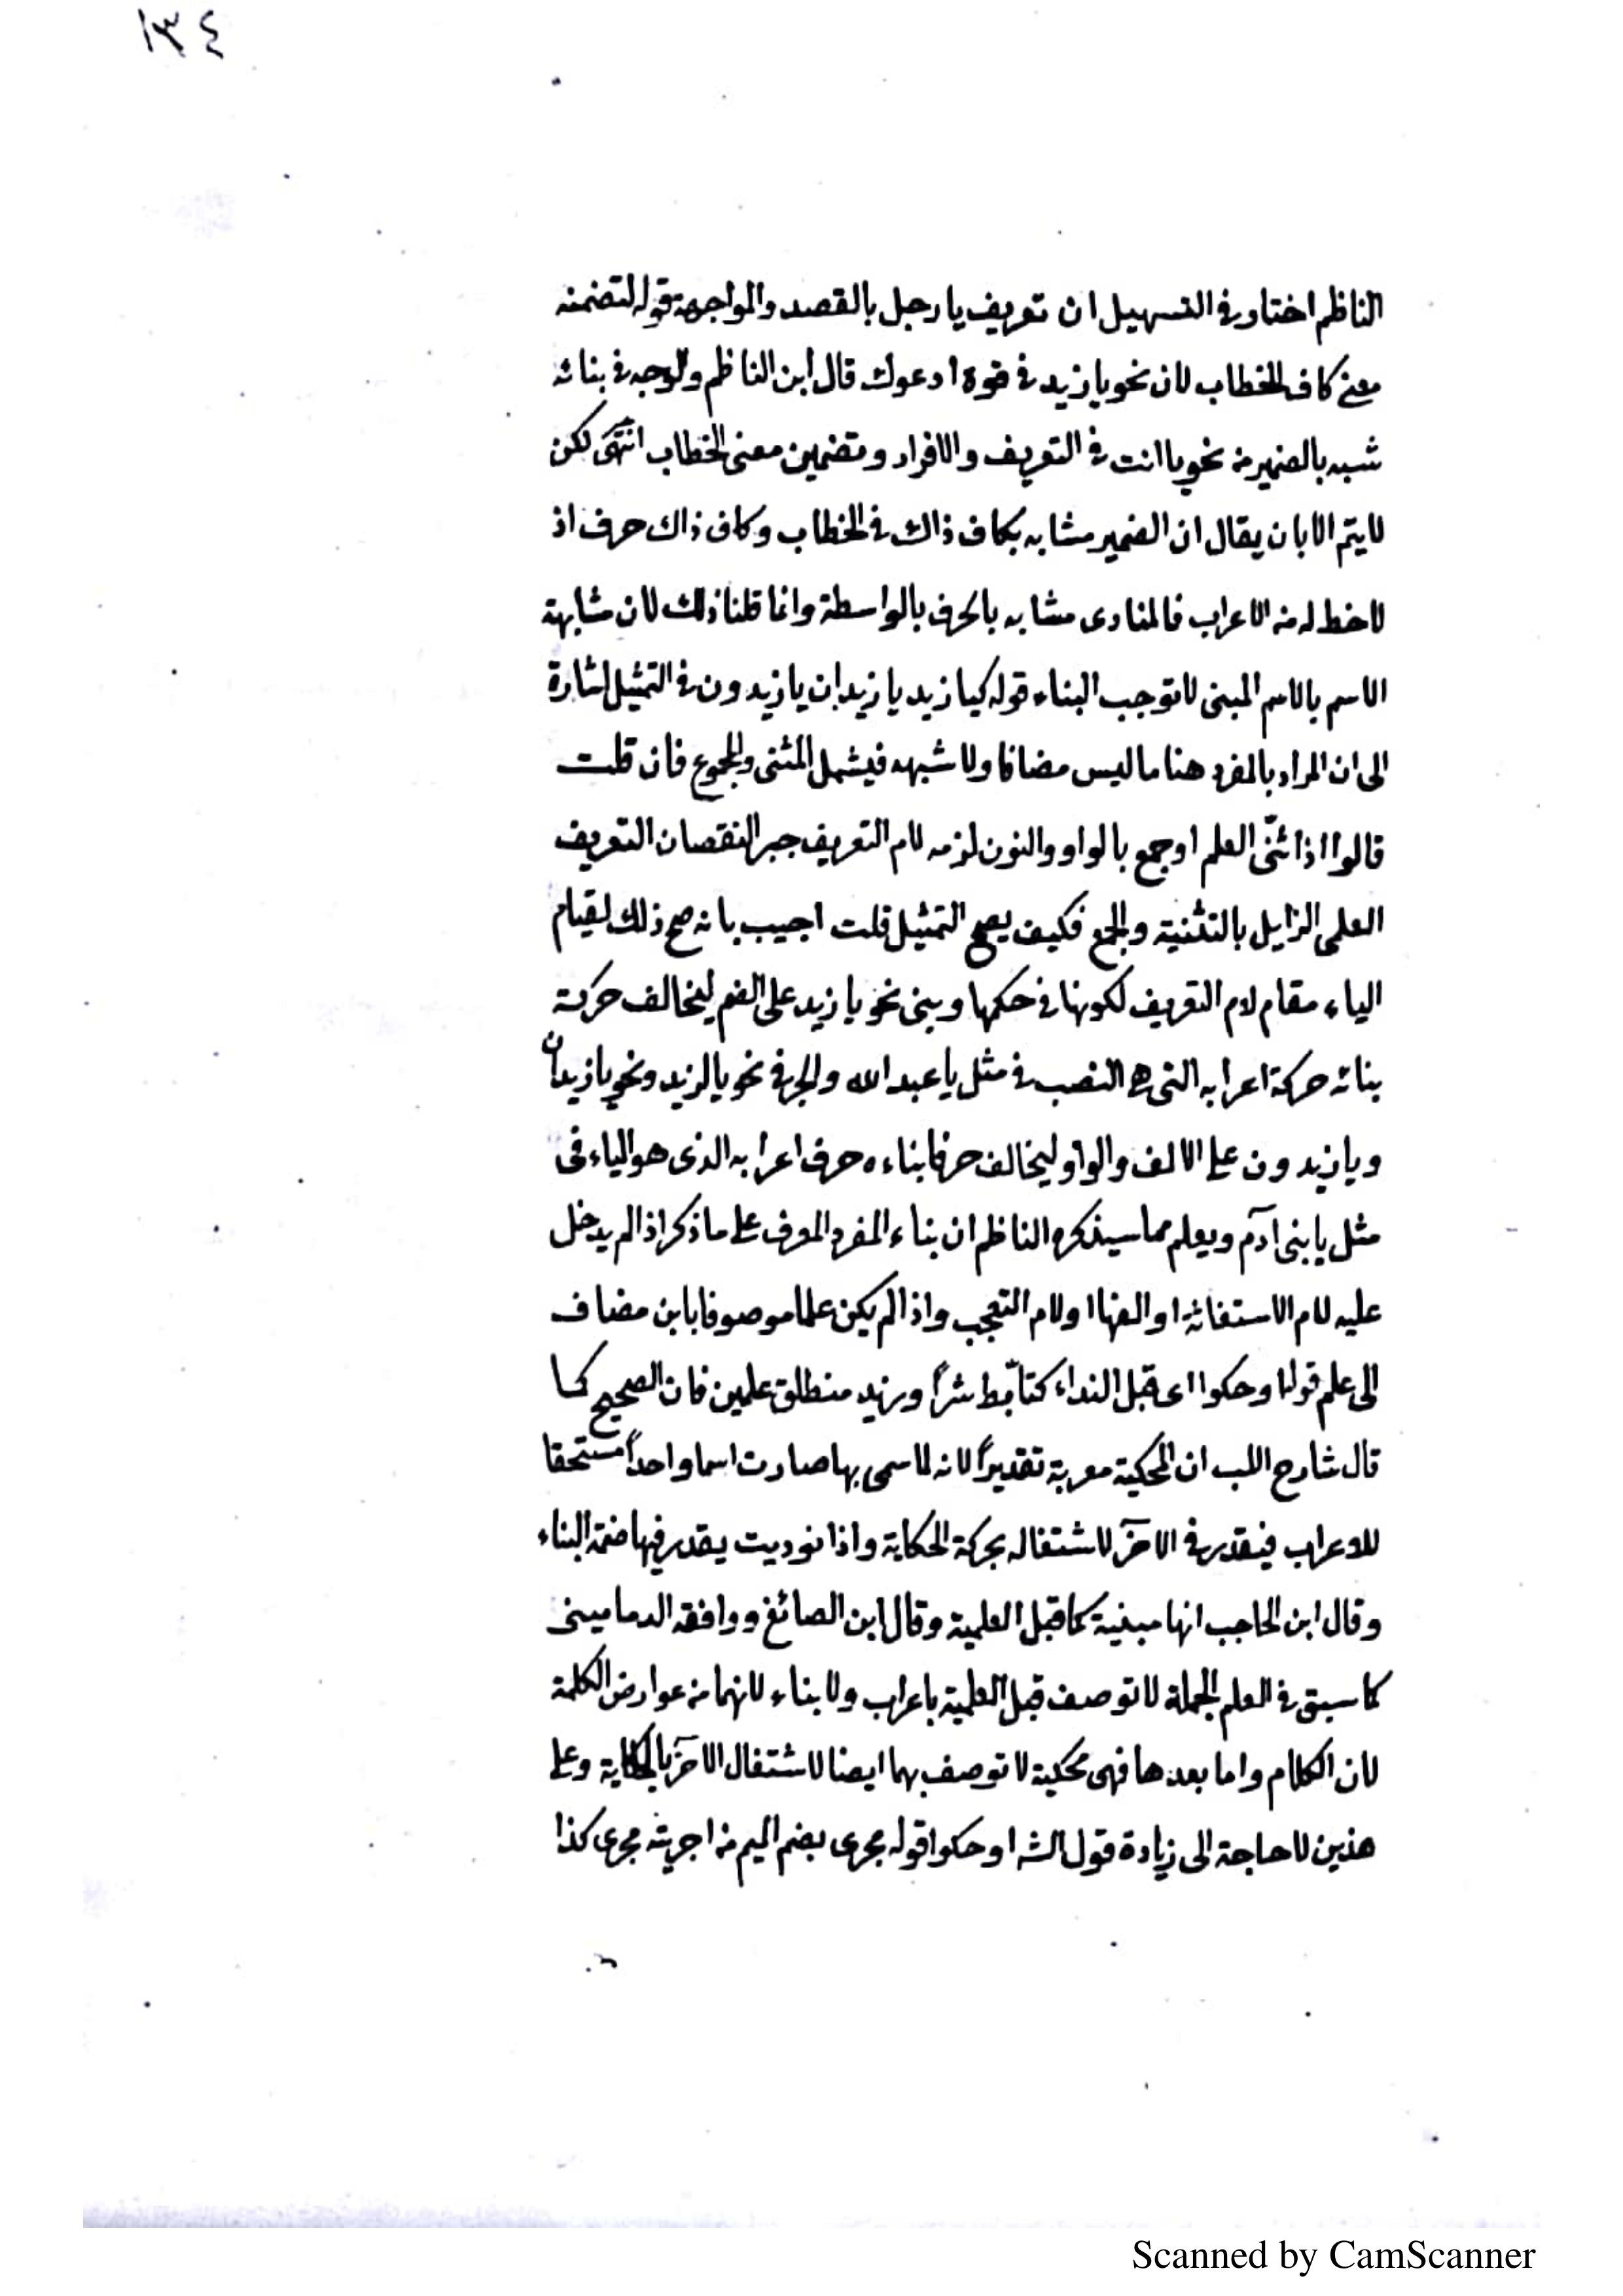 ١٣٤
الناظم اختار في التسهيل ان تعريف يا رجل بالقصد والمواجهة قوله لتضمنه
معنى كاف الخطاب لان نحو يا زيد في قوة ادعوك قال ابن الناظم والوجه في بنائه
شبهه بالضمير من نحو يا انت في التعريف والافراد وتضمين معنى الخطاب انتهى لكن
لا يتم الا بان يقال ان الضمير مشابه بكاف ذاك في الخطاب وكاف ذاك حرف اذ
لا خط له من الاعراب فالمنادى مشابه بالحرف بالواسطة وانما قلنا ذلك لان مشابهة
الاسم بالاسم المبنى لا توجب البناء قوله كيا زيد يا زيدان يا زيدون في التمثيل اشارة
الى ان المراد بالمفرد هنا ما ليس مضافا ولا شبهه فيشمل المثنى والمجموع فان قلت
قالوا اذا ثنّى العلم او جمع بالواو والنون لزمه لام التعريف جبر النقصان التعريف
العلمى الزايل بالتثنية والجمع فكيف يصح التمثيل قلت اجيب بانه صح ذلك لقيام
الياء مقام لام التعريف لكونها في حكمها وبنى نحو يا زيد على الضم ليخالف حركة
بنائه حركة اعرابه التى هي النصب في مثل يا عبد الله والجر في نحو يا لزيد ونحو يا زيدان
ويا زيدون على الالف والواو ليخالف حرفا بناءه حرف اعرابه الذى هو الياء فى
مثل يا بنى آدم ويعلم مما سيذكره الناظم ان بناء المفرد المعرف على ما ذكر اذا لم يدخل
عليه لام الاستغاثة او الفها او لام التعجب واذا لم يكن علما موصوفا بابن مضاف
الى علم قوله او حكوا اى قبل النداء كتابّط شرّاً وزيد منطلق علمين فان الصحيح كما
قال شارح اللب ان المحكية معربة تقديراً لانه لما سمى بها صارت اسما واحداً مستحقا
للاعراب فيقدر في الآخر لاشتغاله بحركة الحكاية واذا نوديت يقدر فيها ضمة البناء
وقال ابن الحاجب انها مبنية كما قبل العلمية وقال ابن الصائغ ووافقه الدمامينى
كما سبق في العلم الجملة لا توصف قبل العلمية باعراب ولا بناء لانهما من عوارض الكلمة
لان الكلام واما بعدها فهى محكية لا توصف بهما ايضا لاشتغال الآخر بالحكاية وعلى
هذين لا حاجة الى زيادة قول الشه او حكوا قوله مجرى بضم الميم من اجريته مجرى كذا
Scanned by CamScanner